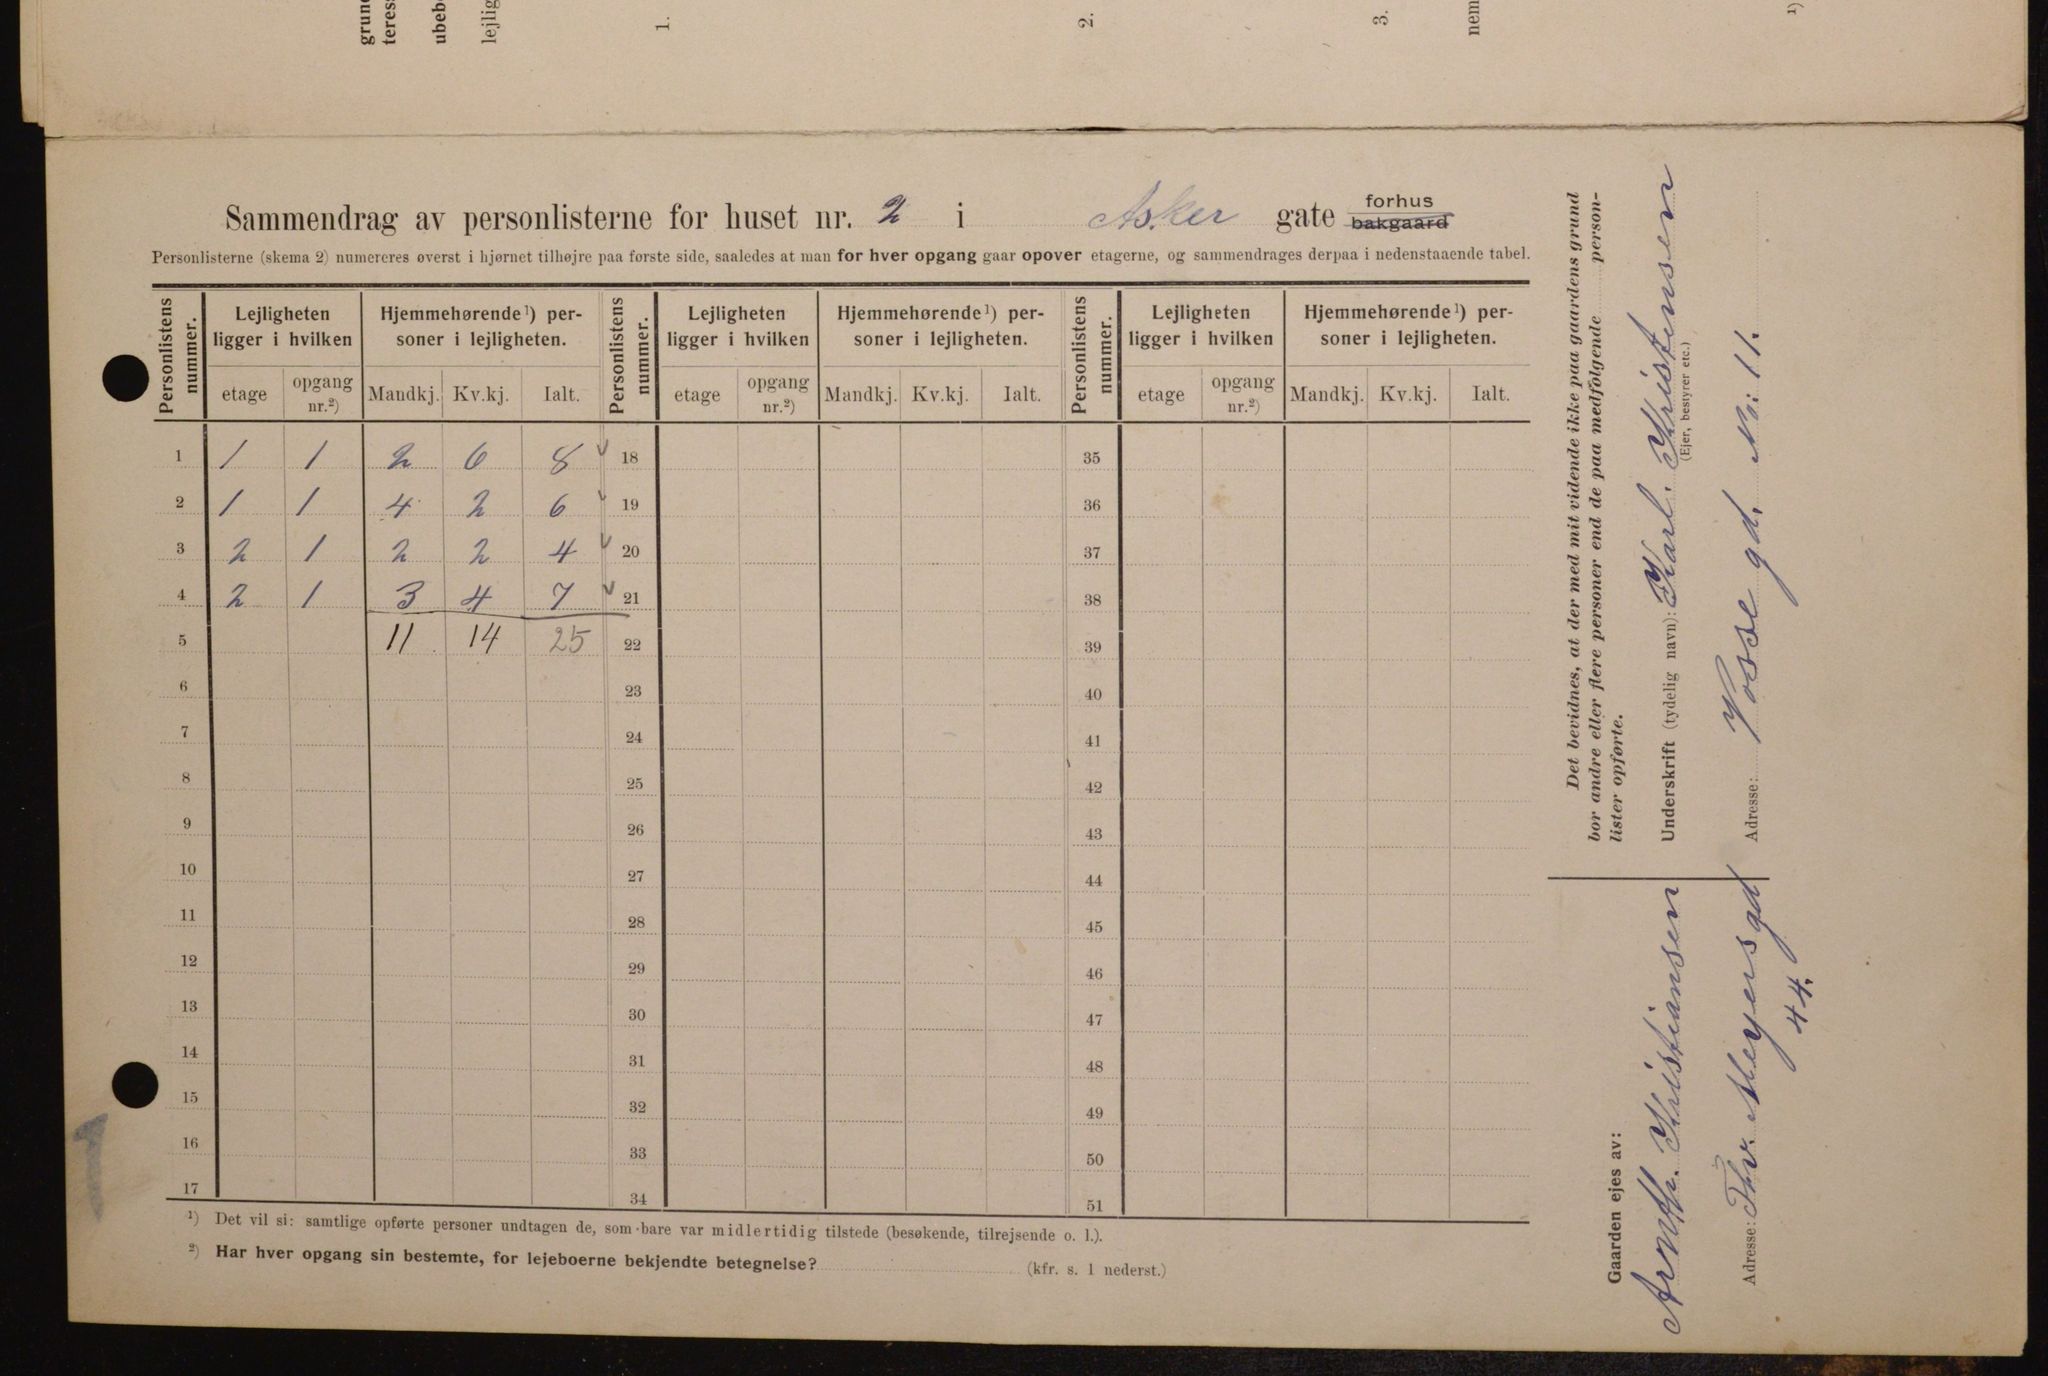 grund
teres
ubeb
lejlig
1.
2.
3.
nem
1)
Sammendrag av personlisterne for huset nr. 2 i Asker gate forhus
bakgaard
Personlisterne (skema 2) numereres øverst i hjørnet tilhøjre paa første side, saaledes at man for hver opgang gaar opover etagerne, og sammendrages derpaa i nedenstaaende tabel.
Personlistens nummer. Lejligheten ligger i hvilken Hjemmehørende¹) personer i lejligheten. Personlistens nummer. Lejligheten ligger i hvilken Hjemmehørende¹) personer i lejligheten. Personlistens nummer. Lejligheten ligger i hvilken Hjemmehørende¹) personer i lejligheten.
etage opgang nr.²) Mandkj. Kv.kj. Ialt. etage opgang nr.²) Mandkj. Kv.kj. Ialt. etage opgang nr.²) Mandkj. Kv.kj. Ialt.
1 1 1 2 6 8 18 35
2 1 1 4 2 6 19 36
3 2 1 2 2 4 20 37
4 2 1 3 4 7 21 38
5 11 14 25 22 39
6 23 40
7 24 41
8 25 42
9 26 43
10 27 44
11 28 45
12 29 46
13 30 47
14 31 48
15 32 49
16 33 50
17 34 51
1) Det vil si: samtlige opførte personer undtagen de, som bare var midlertidig tilstede (besøkende, tilrejsende o. l.).
2) Har hver opgang sin bestemte, for lejeboerne bekjendte betegnelse? (kfr. s. 1 nederst.)
Det bevidnes, at der med mit vidende ikke paa gaardens grund
bor andre eller flere personer end de paa medfølgende person-
lister opførte.
Underskrift (tydelig navn): Karl. Kristensen
(Ejer, bestyrer etc.)
Adresse: Vosse gd. No: 11.
Gaarden ejes av:
Arnth. Kristiansen
Adresse: Thv. Meyersgd
44.
1